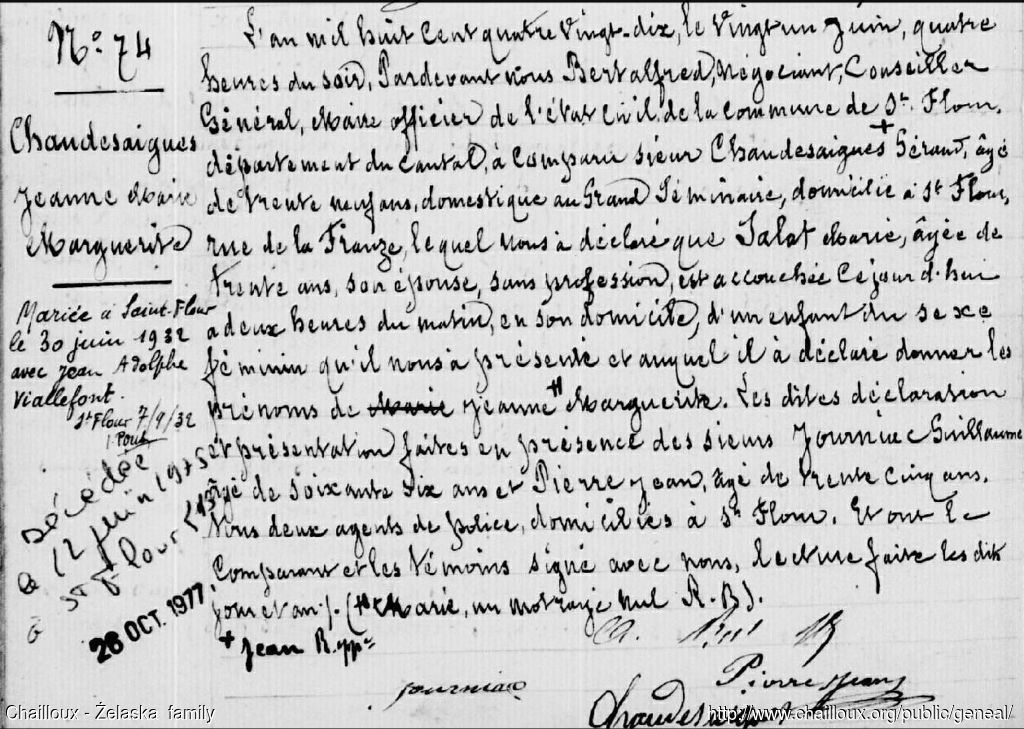 N° 74
Chaudesaigues
Jeanne Marie
Marguerite
Mariée à Saint-Flour
le 30 juin 1932
avec Jean Adolphe
Viallefont.
St Flour 7/9/32
Décédée
le 12 juin 1975
à St Flour (15)
26 OCT. 1977
L'an mil huit cent quatre vingt-dix, le vingt un Juin, quatre
heures du soir, Pardevant nous Bert alfred, Négociant, Conseiller
Général, Maire officier de l'état civil de la commune de St. Flour.
département du Cantal, à Comparu sieur Chaudesaigues + Géraud, âgé
de trente neuf ans, domestique au Grand Séminaire, domicilié à St Flour,
rue de la Franze, lequel nous à déclaré que Salat Marie, âgée de
trente ans, son épouse, sans profession, est accouchée ce jour d'hui
a deux heures du matin, en son domicile, d'un enfant du sexe
féminin qu'il nous à présenté et auquel il à déclaré donner les
prénoms de Marie Jeanne # Marguerite. Les dites déclaration
et présentation faites en présence des sieurs Journiac Guillaume
âgé de soixante six ans et Pierre Jean, âgé de trente cinq ans.
Tous deux agents de police, domiciliés à St Flour. Et ont le
Comparant et les témoins signé avec nous, lecture faite les dits
jour et an ./. (# Marie, un mot rayé nul A.B).
+ Jean R. app
Journiac
Pierre Jean
Chaudesaigues
Chailloux - Želaska family
http://www.chailloux.org/public/geneal/